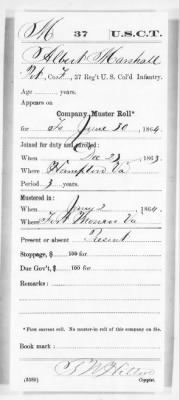 M 37 U.S.C.T.
Albert Marshall
Pvt, Co. F, 37 Reg't U.S. Col'd Infantry.
Age years.
Appears on
Company Muster Roll*
for To June 30, 1864.
Joined for duty and enrolled:
When Dec 23, 1863.
Where Hampton Va
Period 3 years.
Mustered in:
When Jany 2, 1864.
Where Fort Monroe Va
Present or absent Present
Stoppage, $ 100 for
Due Gov't, $ 100 for
Remarks:
*First current roll. No muster-in roll of this company on file.
Book mark:
(358b) Copyist.